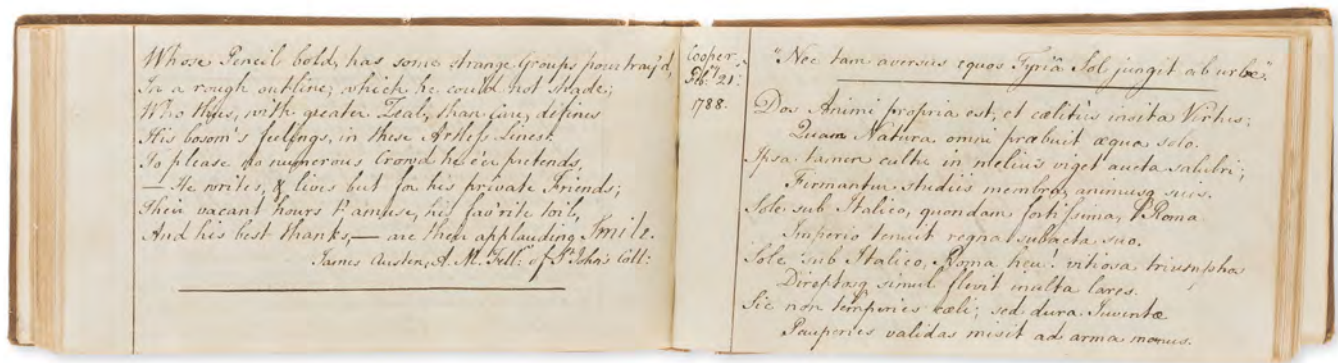 Whose Pencil bold, has some strange Groups pourtray'd,
In a rough outline; which he could not shade;
Who thus, with greater Zeal, than Care, defines
His bosom's feelings, in these Artless Lines:
To please no numerous Crowd he e'er pretends,
— He writes, & lives but for his private Friends;
Their vacant hours t'amuse, his fav'rite toil,
And his best thanks, — are their applauding Smile.
James Austen, A. M. Fell: of St. John's Coll:
Cooper
Feby. 21:
1788.
"Nec tam aversus equos Tyriâ Sol jungit ab urbe".
Dos Animi propria est, et cælitùs insita Virtus;
Quam Natura omni præbuit æqua solo.
Ipsa tamen cultu in melius viget aucta salubri;
Firmantur studiis membra, animusq suis.
Sole sub Italico, quondam fortissima, Roma
Imperio tenuit regna subacta suo.
Sole sub Italico, Roma heu! vitiosa triumphos
Direptosq simul flevit inulta lares.
Sic non temperies cæli; sed dura Juventæ
Pauperies validas misit ad arma manus.